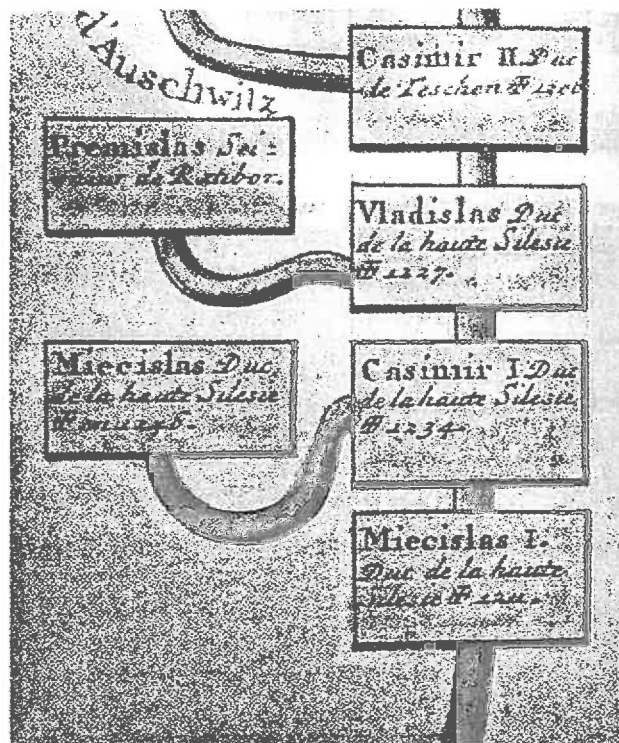 d'Auschwitz
Casimir II. Duc
de Teschen
Premislas Sei:
gneur de Ratibor.
Vladislas Duc
de la haute Silesie
1227.
Miecislas Duc
de la haute Silesie
Casimir I. Duc
de la haute Silesie
1234
Miecislas I.
Duc de la haute
Silesie